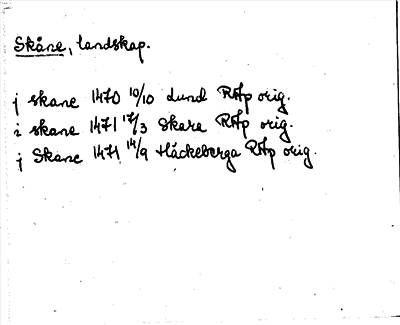 Skåne, landskap.
j skane 1470 10/10 Lund RAp orig.
i skane 1471 17/3 Skara RAp orig.
j Skane 1471 14/9 Häckeberga RAp orig.